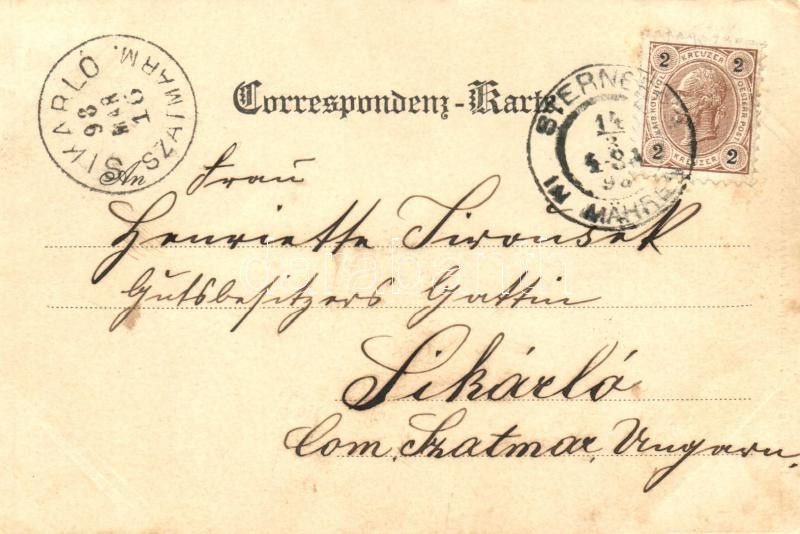 SIKÁRLÓ
SZATMÁRM.
98
MAR
16
Correspondenz-Karte
STERNBERG
IN MÄHREN
14
3
98
2 KREUZER 2
2 KREUZER 2
An Frau
Henriette Sironsek
Gutsbesitzers Gattin
Sikárló
Com. Szatmar, Ungarn.
darabanth